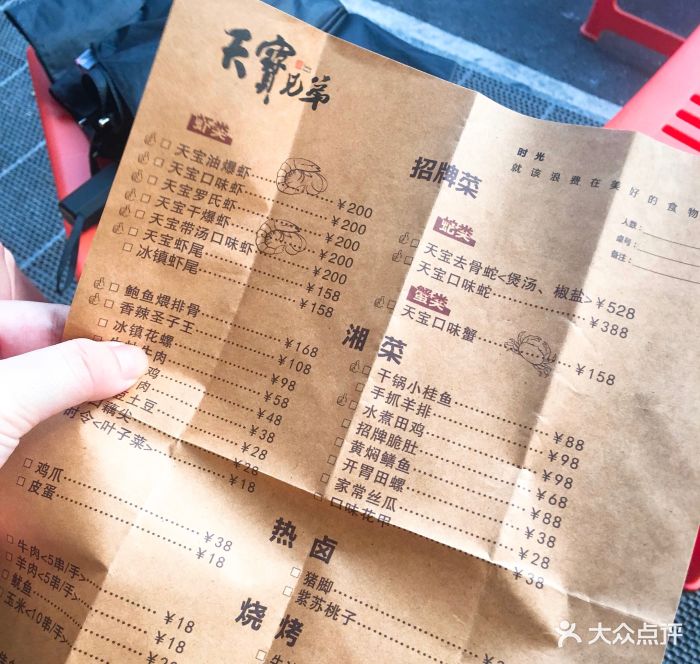 天寳兄弟
时光
就该浪费在美好的食物
人数：
桌号：
备注：
招牌菜
虾类
天宝油爆虾 ¥200
天宝口味虾 ¥200
天宝罗氏虾 ¥200
天宝干爆虾 ¥200
天宝带汤口味虾 ¥200
天宝虾尾 ¥158
冰镇虾尾 ¥158
蛇类
天宝去骨蛇<煲汤、椒盐> ¥528
天宝口味蛇 ¥388
蟹类
天宝口味蟹 ¥158
湘菜
鲍鱼煨排骨 ¥168
香辣圣子王 ¥108
冰镇花螺 ¥98
牛肉 ¥58
鸡 ¥48
肉 ¥38
土豆 ¥28
藕尖 ¥18
时令<叶子菜> ¥18
干锅小桂鱼 ¥88
手抓羊排 ¥98
水煮田鸡 ¥98
招牌脆肚 ¥68
黄焖鳝鱼 ¥88
开胃田螺 ¥38
家常丝瓜 ¥28
口味花甲 ¥38
热卤
鸡爪 ¥38
皮蛋 ¥18
猪脚
紫苏桃子
烧烤
牛肉<5串/手> ¥18
羊肉<5串/手> ¥18
鱿鱼
玉米<10串/手>
大众点评